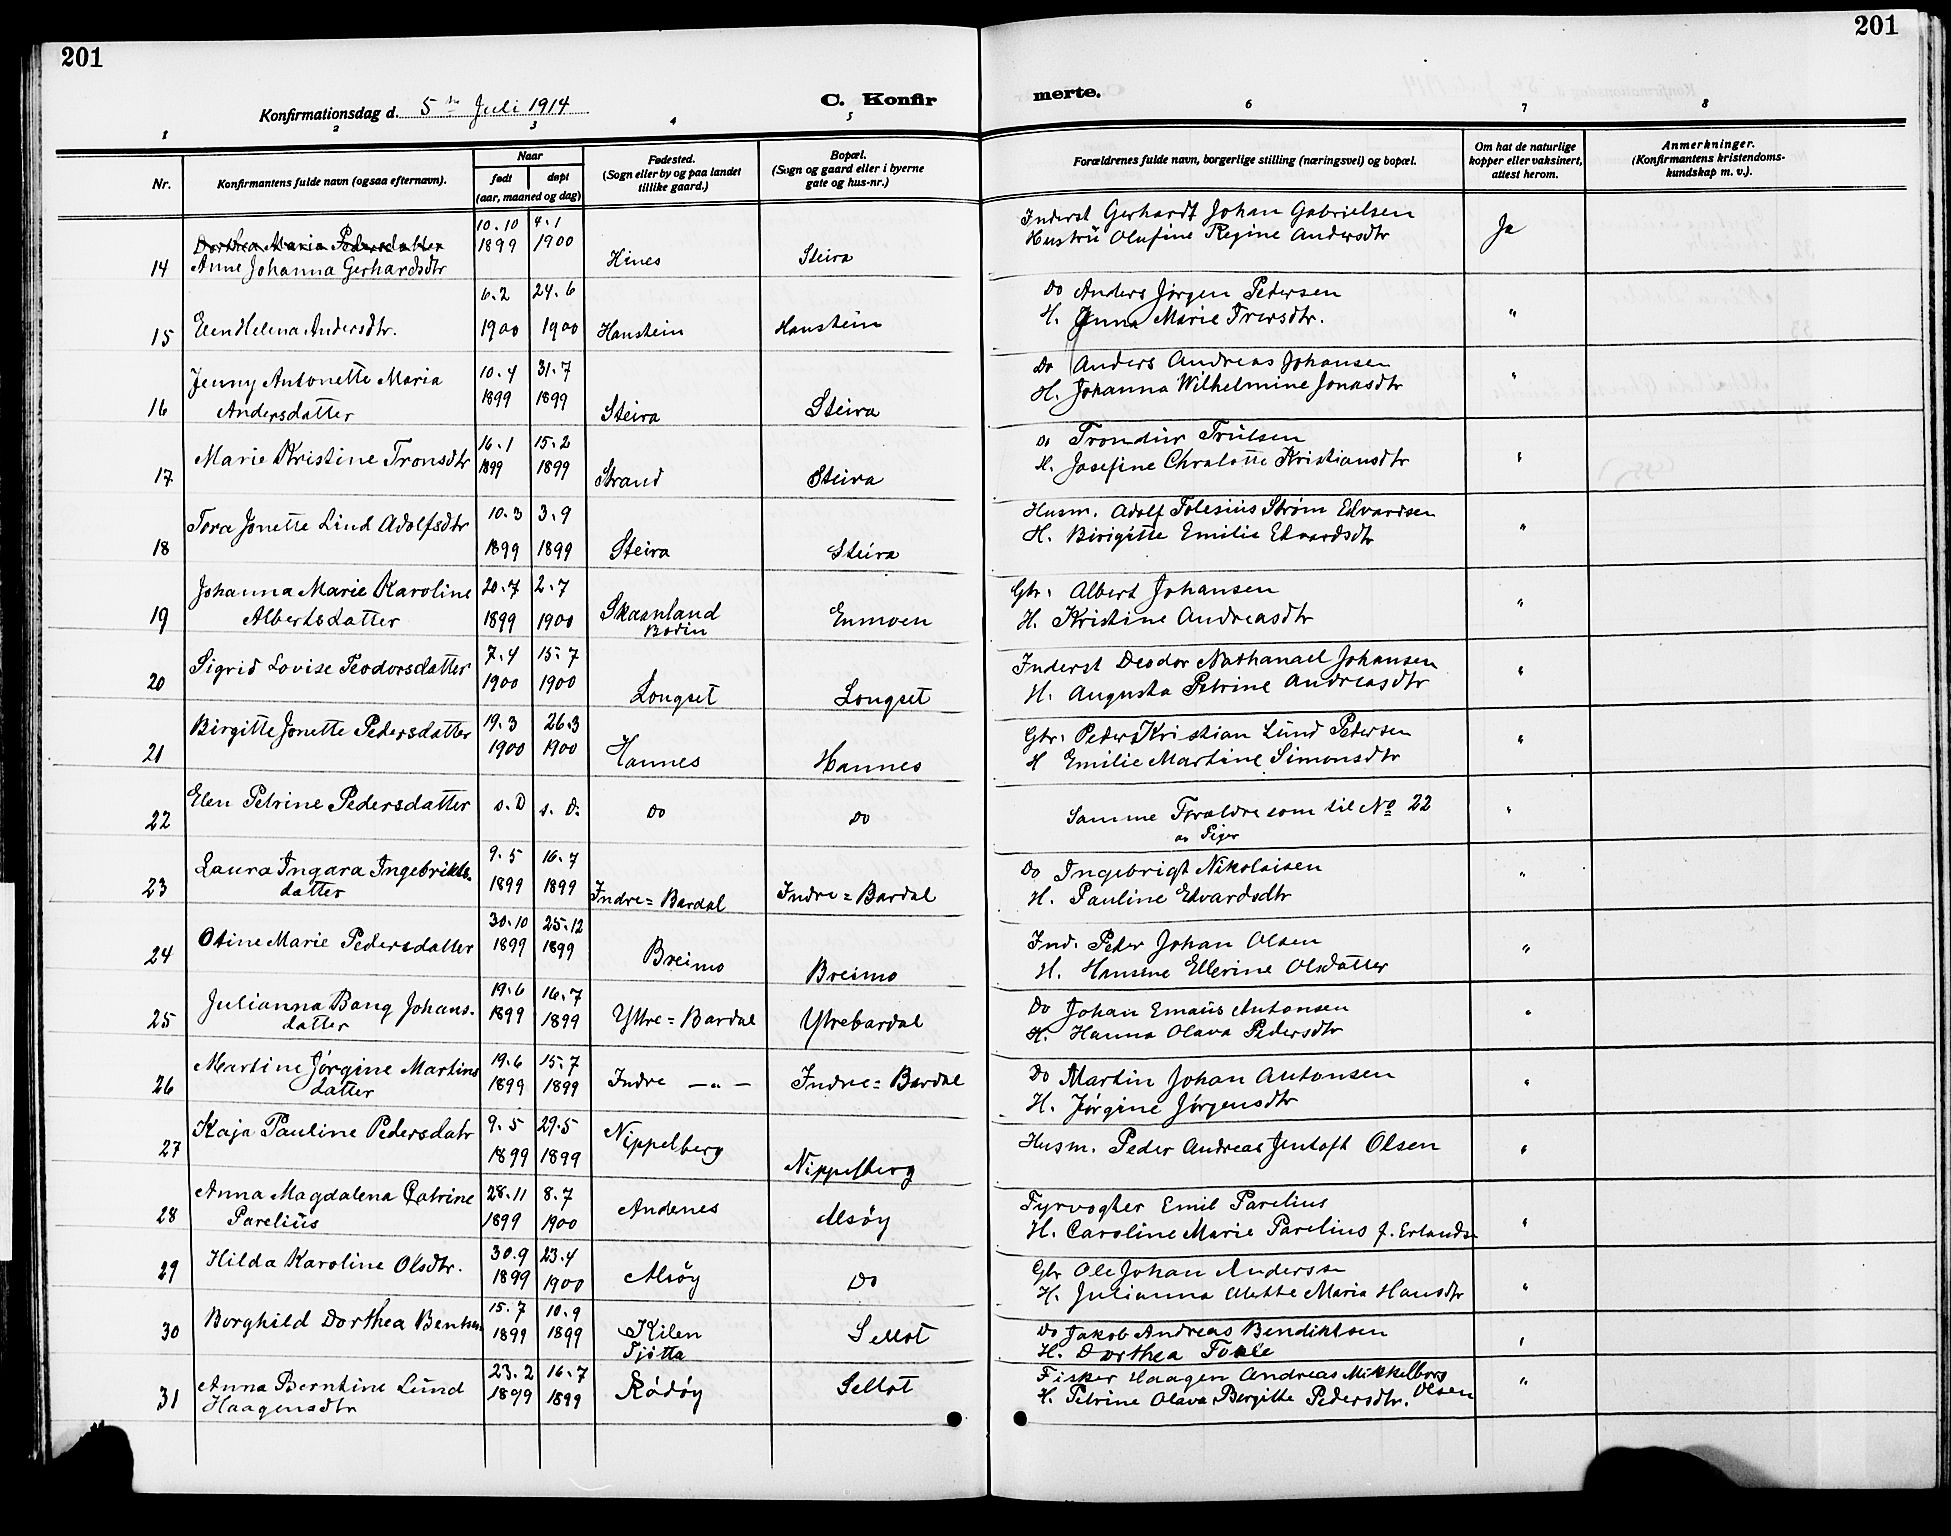 201
201
Konfirmationsdag d. 5te Juli 1914
C. Konfirmerte.
1 2 3 4 5 6 7 8
Nr.
Konfirmantens fulde navn (ogsaa efternavn).
Naar
født
døpt
(aar, maaned og dag)
Fødested.
(Sogn eller by og paa landet
tillike gaard.)
Bopæl.
(Sogn og gaard eller i byerne
gate og hus-nr.)
Forældrenes fulde navn, borgerlige stilling (næringsvei) og bopæl.
Om hat de naturlige
kopper eller vaksinert,
attest herom.
Anmerkninger.
(Konfirmantens kristendoms-
kundskap m. v.).
Dorthea Maria Pedersdatter 10.10 4.1 Inderst Gerhardt Johan Gabrielsen
14 Anne Johanna Gerhardsdtr 1899 1900 Hines Steira Hustru Olufine Regine Andersdtr Ja
6.2 24.6 Do Anders Jørgen Petersen
15 Elen Helena Andersdtr. 1900 1900 Hanstein Hanstein H. Anna Marie "
Jenny Antonette Maria 10.4 31.7 Do Anders Andreas Johansen
16 Andersdatter 1899 1899 Steira Steira H. Johanna Wilhelmine Jonasdtr "
Marie Kristine Tronsdtr 16.1 15.2 Do Trondur Trulsen
17 1899 1899 Strand Steira H. Josefine Chralotte Kristiansdtr "
Tora Jonette Lind Adolfsdtr 10.3 3.9 Husm. Adolf Tolesius Strøm Edvardsen
18 1899 1899 Steira Steira H. Birigitte Emilie Edvardsdtr "
Johanna Marie Karoline 20.7 2.7 Gbr. Albert Johansen
19 Albertsdatter 1899 1900 Skaanland Enmoen H. Kristine Andreasdtr "
Bodin
Sigrid Lovise Teodorsdatter 7.4 15.7 Inderst Deodor Nathanael Johansen
20 1900 1900 Longset Longset H. Augusta Petrine Andreasdtr "
Birgitte Jonette Pedersdatter 19.3 26.3 Gbr. Peder Kristian Lund Petersen
21 1900 1900 Hannes Hannes H Emilie Martine Simonsdtr "
22 Elen Petrine Pedersdatter s. D s. D. Do Do Samme Foraldre som til No 22 "
av Piger
Laura Ingara Ingebrikts- 9.5 16.7 Do Ingebrigt Nikolaisen
23 datter 1899 1899 Indre=Bardal Indre=Bardal H. Pauline Edvardsdtr "
Otine Marie Pedersdatter 30.10 25.12 Ind. Peder Johan Olsen
24 1899 1899 Breimo Breimo H. Hansine Ellerine Olsdatter "
Julianna Bang Johans- 19.6 16.7 Do Johan Emaus Antonsen
25 datter 1899 1899 Yttre=Bardal Ytrebardal H. Hanna Olava Pedersdtr "
Martine Jørgine Martins 19.6 15.7 Do Martin Johan Antonsen
26 datter 1899 1899 Indre — " — Indre=Bardal H. Jørgine Jørgensdtr "
Kaja Pauline Pedersdatr 9.5 29.5 Husm. Peder Andreas Jentoft Olsen
27 1899 1899 Nippelberg Nippelberg "
Anna Magdalena Catrine 28.11 8.7 Fyrvogter Emil Parelius
28 Parelius 1899 1900 Andenes Alsøy H. Caroline Marie Parelius f. Erlands "
Hilda Karoline Olsdtr. 30.9 23.4 Gbr Ole Johan Anderssen
29 1899 1900 Alsøy Do H. Julianna Alette Maria Hansdtr "
Borghild Dorthea 15.7 10.9 Do Jakob Andreas Bendiktsen
30 1899 1899 Kilen Sellot H. Dorthea "
Tjøtta
Anna Berntine Lund 23.2 16.7 Fisker Haagen Andreas Mikkelbors
31 Haagensdtr 1899 1899 Rødøy Sellot H. Petrine Olava Bergitte Pedersdtr. Olsen "